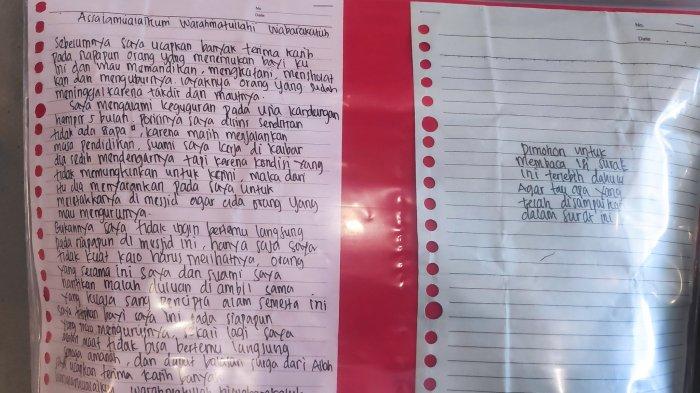 No.
Date.
Assalamualaikum Warahmatullahi Wabarakatuh
Sebelumnya saya ucapkan banyak terima kasih
pada siapapun orang yang menemukan bayi ku
ini dan mau memandikan, mengkafani, mensholat
kan dan menguburnya layaknya orang yang sudah
meninggal karena takdir dan mautnya.
Saya mengalami keguguran pada usia kandungan
hampir 5 bulan. Posisinya saya disini sendirian
tidak ada siapa", karena masih menjalankan
masa pendidikan, suami saya kerja di kalbar
dia sedih mendengarnya tapi karena kondisi yang
tidak memungkinkan untuk kami, maka dari
itu dia menyarankan pada saya untuk
meletakkanya di mesjid agar ada orang yang
mau mengurusnya.
Bukannya saya tidak ingin bertemu langsung
pada siapapun di musjid ini, hanya saja saya
tidak kuat kalo harus melihatnya, orang
yang selama ini saya dan suami saya
nantikan malah duluan di ambil sama
yang kuasa sang pencipta alam semesta ini
saya bayi saya ini pada siapapun
yang mau mengurusnya, sekali lagi saya
maaf tidak bisa bertemu langsung
semoga amanah, dan dapat balasan surga dari Allah
ucapkan terima kasih banyak
warahmatullahi
No.
Date.
Dimohon untuk
membaca isi surat
ini terlebih dahulu
Agar tau apa yang
telah disampaikan
dalam surat ini